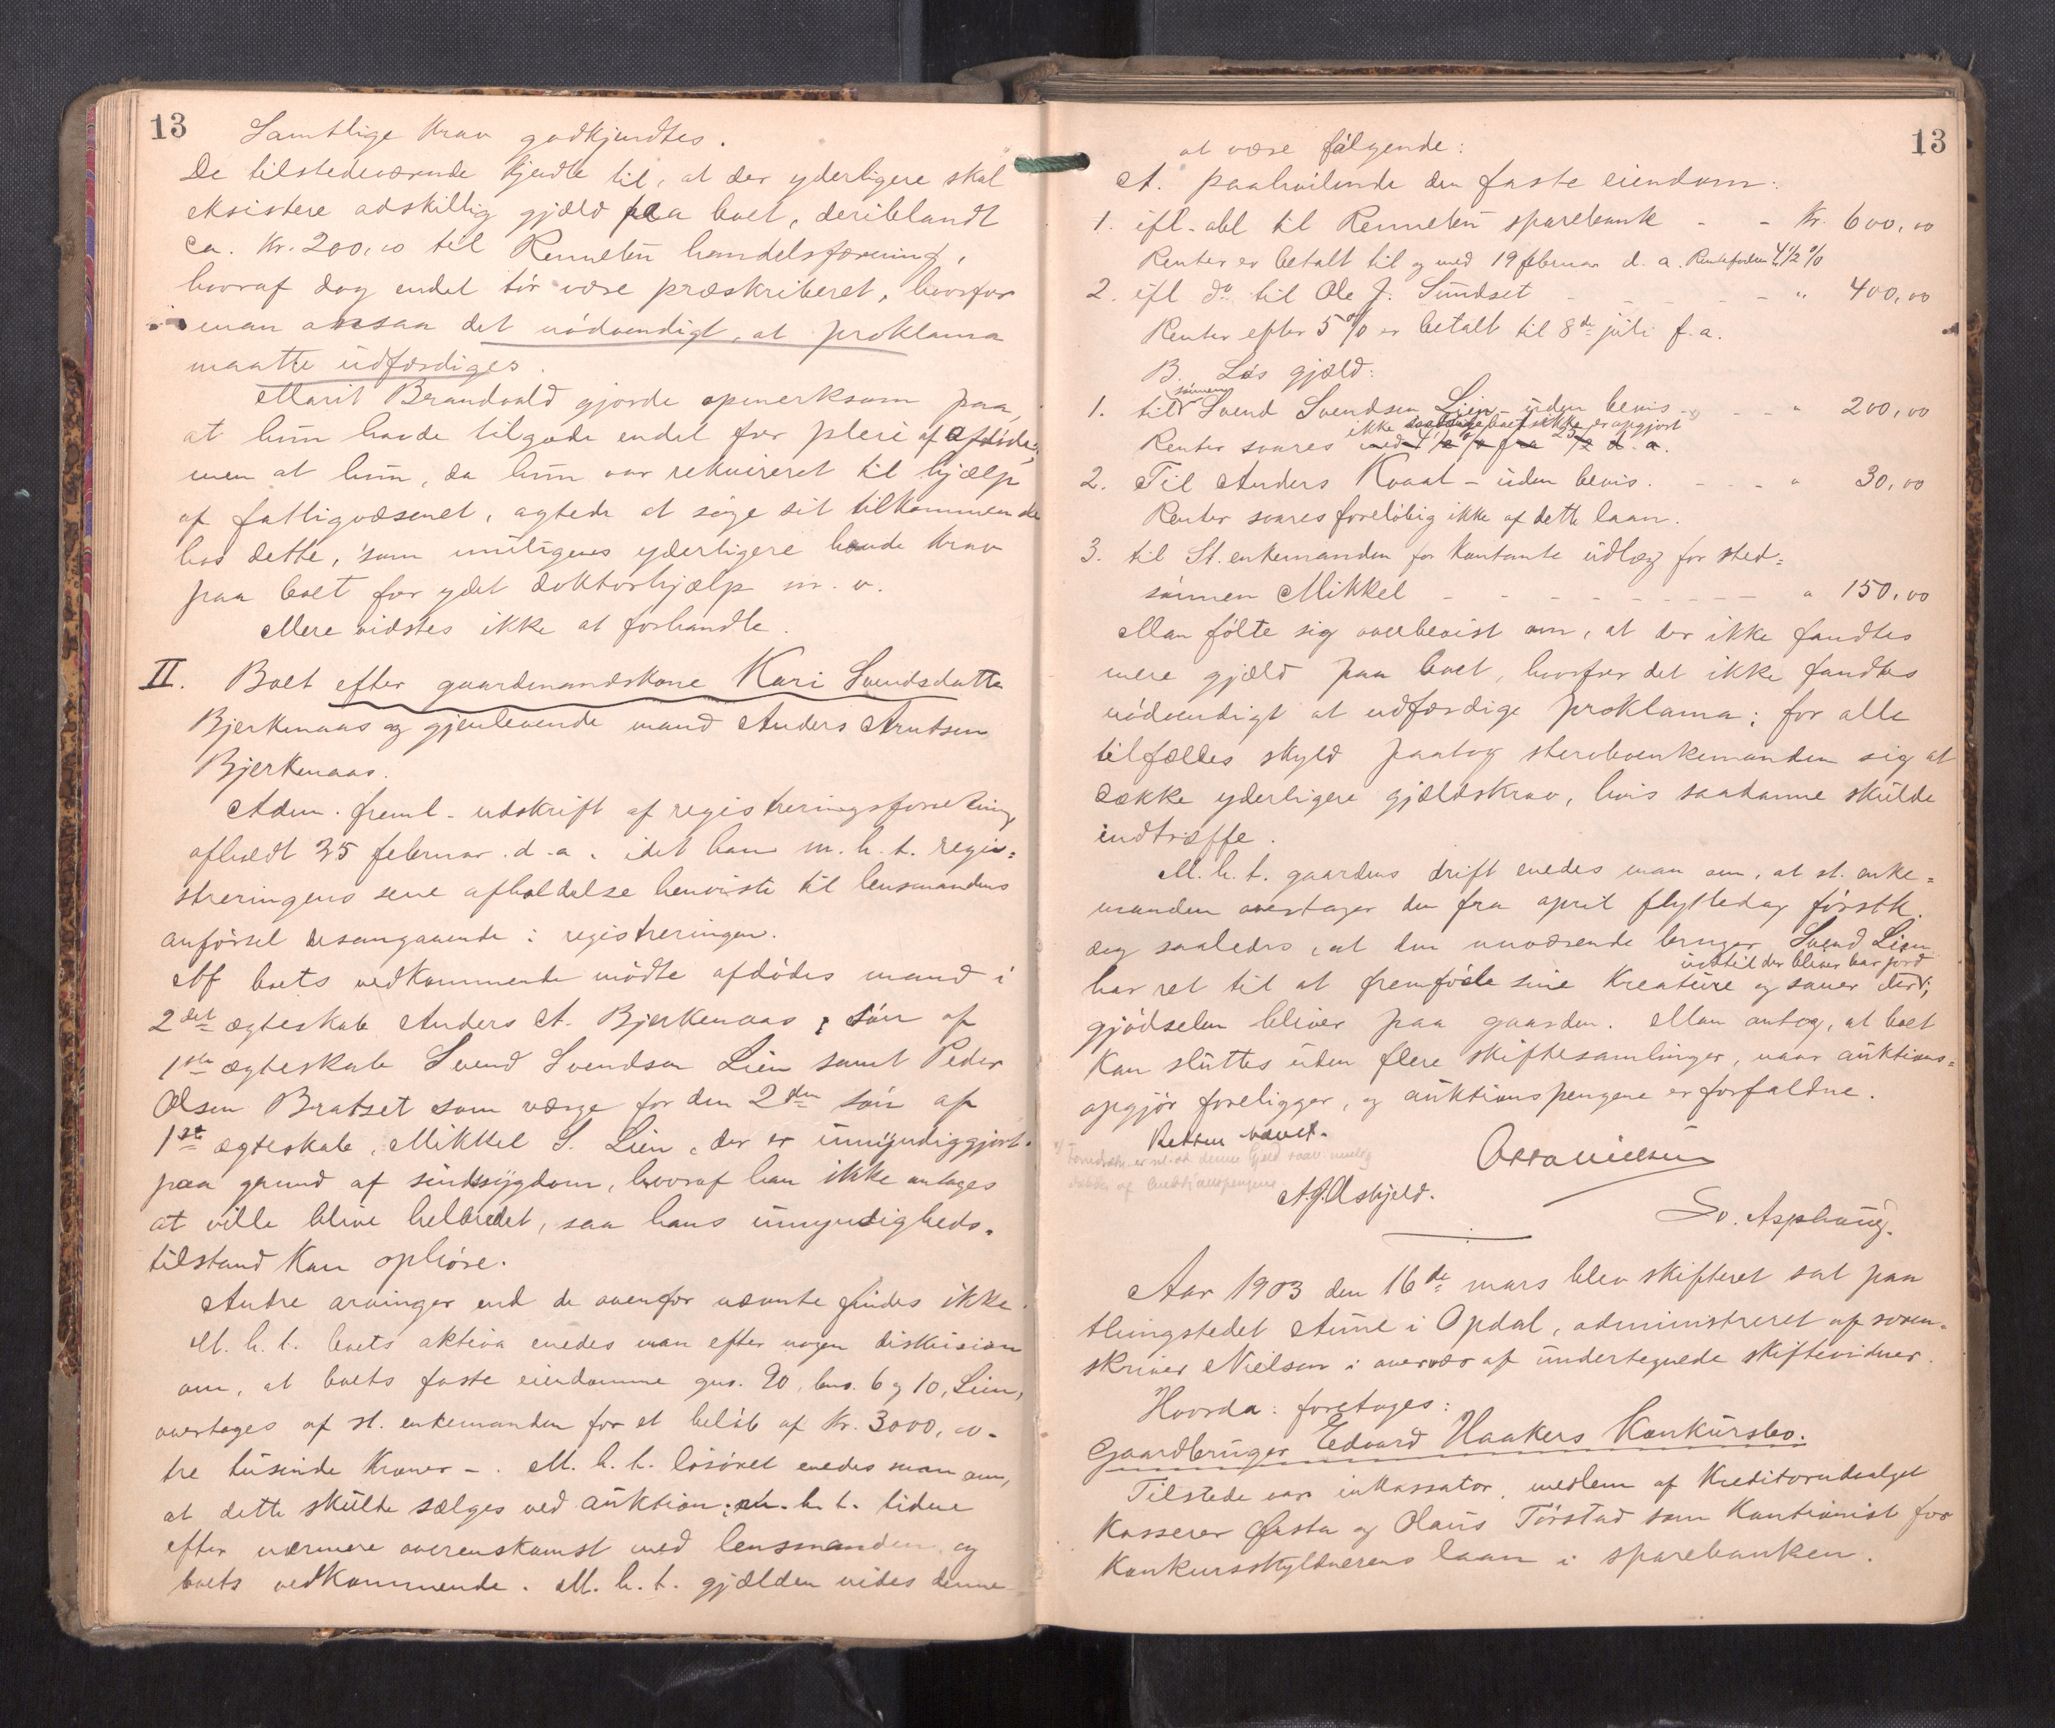 13
Samtlige krav godkjendtes.
De tilstedeværende kjendte til, at der yderligere skal
eksistere adskillig gjæld paa boet, deriblandt
ca. Kr. 200,00 til Rennebu handelsforening,
hvoraf dog endel tør være præskriberet, hvorfor
man ansaa det nødvendigt, at proklama
maatte udfærdiges.
Marit Brandvold gjorde opmerksom paa,
at hun havde tilgode endel for pleie af afdøde,
men at hun, da hun var rekvireret til hjælp
af fattigvæsenet, agtede at søge sit tilkommende
hos dette, som muligens yderligere havde krav
paa boet for ydet doktorhjælp m. v.
Mere vidstes ikke at forhandle.
II. Boet efter gaardmandskone Kari Svendsdatter
Bjerkenaas og gjenlevende mand Anders Arntsen
Bjerkenaas.
Adm. freml. udskrift af registreringsforretning
afholdt 25 februar d. a., idet han m. h. t. regi=
streringens sene afholdelse henviste til lensmandens
anførsel desangaaende i registreringen.
Af boets vedkommende mødte afdødes mand i
2det ægteskab Anders A. Bjerkenaas, søn af
1ste ægteskab Svend Svendsen Lien samt Peder
Olsen Bratset som værge for den 2den søn af
1ste ægteskab, Mikkel S. Lien, der er umyndiggjort
paa grund af sindssygdom, hvoraf han ikke antages
at ville blive helbredet, saa hans umyndigheds-
tilstand kan ophøre.
Andre arvinger end de ovenfor nævnte findes ikke.
M. h. t. boets aktiva enedes man efter nogen diskusion
om, at boets faste eiendomme gno. 90, bno. 6 og 10, Lien,
overtages af st. enkemanden for et beløb af Kr. 3000,00 -
tre tusinde kroner -. M. h. t. løsøret enedes man om,
at dette skulde sælges ved auktion, m. h. t. tiden
efter nærmere overenskomst med lensmanden og
boets vedkommende. M. h. t. gjælden vides denne
13
at være følgende:
A. paahvilende den faste eiendom:
1. ifl. obl til Rennebu sparebank - - Kr. 600,00
Renter er betalt til og med 19 februar d. a. Rentefoden 4 1/2 %
2. ifl do til Ole J. Sundset - - - - " 400,00
Renter efter 5 % er betalt til 8de juli f. a.
B. Løs gjæld:
1. til sønnen Svend Svendsen Lien - uden bevis - x) - - " 200,00
Renter svares ikke saalænge boet ikke er opgjort
2. Til Anders Kvaal - uden bevis. - - - " 30,00
Renter svares foreløbig ikke af dette laan.
3. til St. enkemanden for kontante udlæg for sted=
sønnen Mikkel - - - - - - - - " 150,00
Man følte sig overbevist om, at der ikke fandtes
mere gjæld paa boet, hvorfor det ikke fandtes
nødvendigt at udfærdige proklama; for alle
tilfælles skyld paatog sterboenkemanden sig at
dække yderligere gjældskrav, hvis saadanne skulde
indtræffe.
M. h. t. gaardens drift enedes man om, at st. enke=
manden overtager den fra april flyttedag førstk.
dog saaledes, at den nuværende bruger Svend Lien
har ret til at fremføde sine kreature og sauer der indtil der bliver bar jord;
gjødselen bliver paa gaarden. Man antog, at boet
kan sluttes uden flere skiftesamlinger, naar auktions=
opgjør foreligger, og auktionspengene er forfaldne.
Retten hævet.
x) Forudsætn. er at denne gjeld
dækkes af Auktionspengene
Otto Nielsen
A. J. Asbjeld.
Sv. Asphaug.
Aar 1903 den 16de mars blev skifteret sat paa
thingstedet Aune i Opdal, administreret af soren-
skriver Nielsen i overvær af undertegnede skiftevidner.
Hvorda: foretages:
Gaardbruger Edvard Haakers Konkursbo.
Tilstede var inkassator, medlem af Kreditorudvalget
kasserer Gjasta og Olaus Torstad som kautionist for
konkursskyldnerens laan i sparebanken.